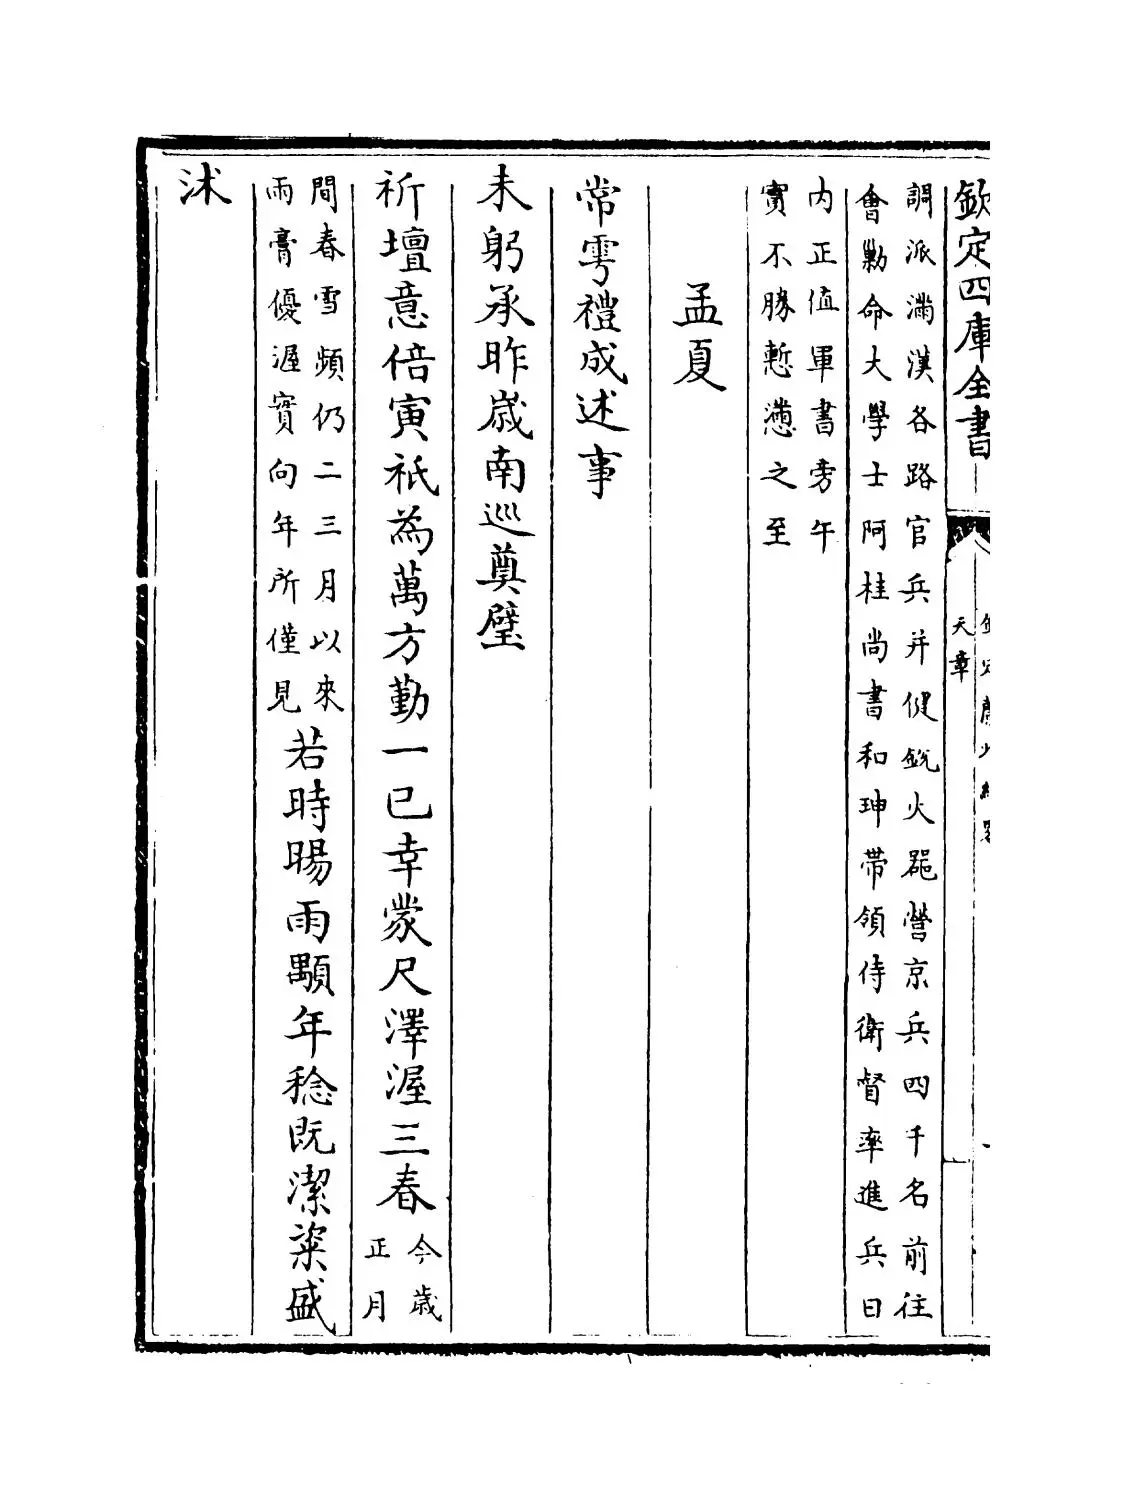 欽定四庫全書
天章
調派滿漢各路官兵并健銳火器營京兵四千名前往
會勦命大學士阿桂尚書和珅帶領侍衛督率進兵日
内正值軍書旁午
實不勝慙懣之至
孟夏
常雩禮成述事
未躬承昨歳南巡奠璧
祈壇意倍寅祇為萬方勤一已幸蒙尺澤渥三春今歳
正月
間春雪頻仍二三月以來
雨膏優渥實向年所僅見
若時暘雨顒年稔既潔粢盛
沭